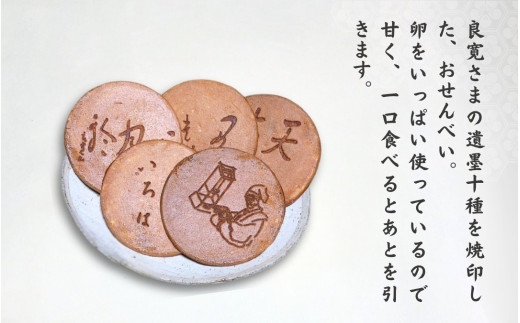 良寛さまの遺墨十種を焼印し
た、おせんべい。
卵をいっぱい使っているので
甘く、一口食べるとあとを引
きます。
天
いろは